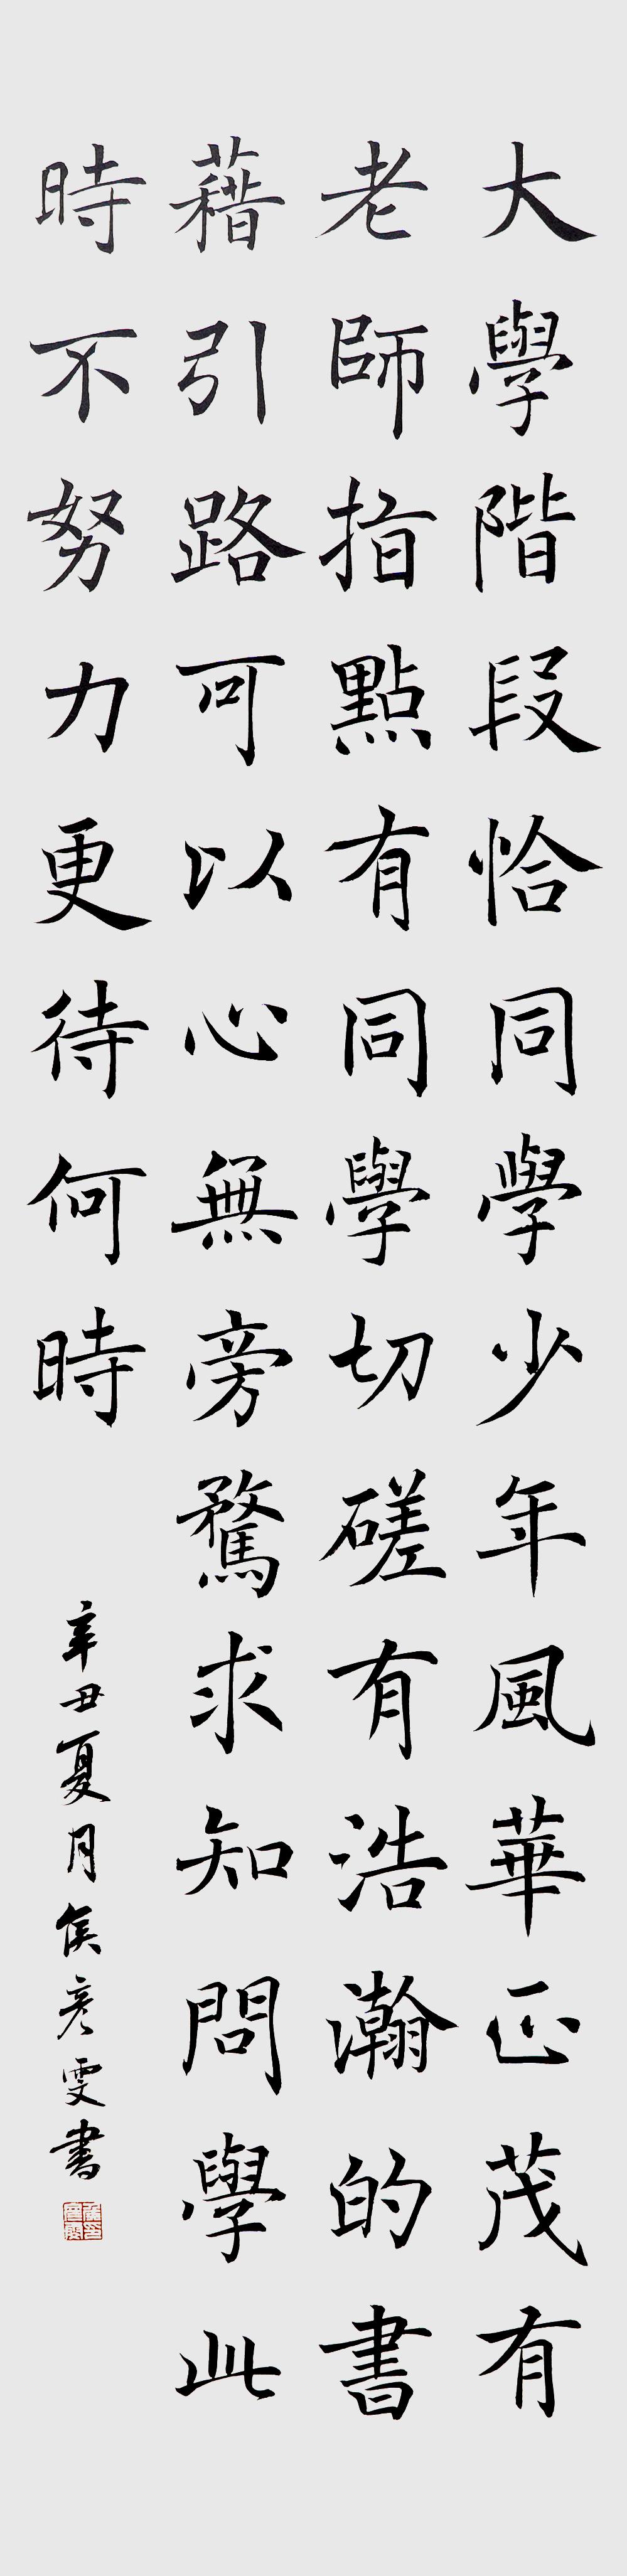 大學階段恰同學少年風華正茂有
老師指點有同學切磋有浩瀚的書
藉引路可以心無旁騖求知問學此
時不努力更待何時
辛丑夏月侯彥雯書